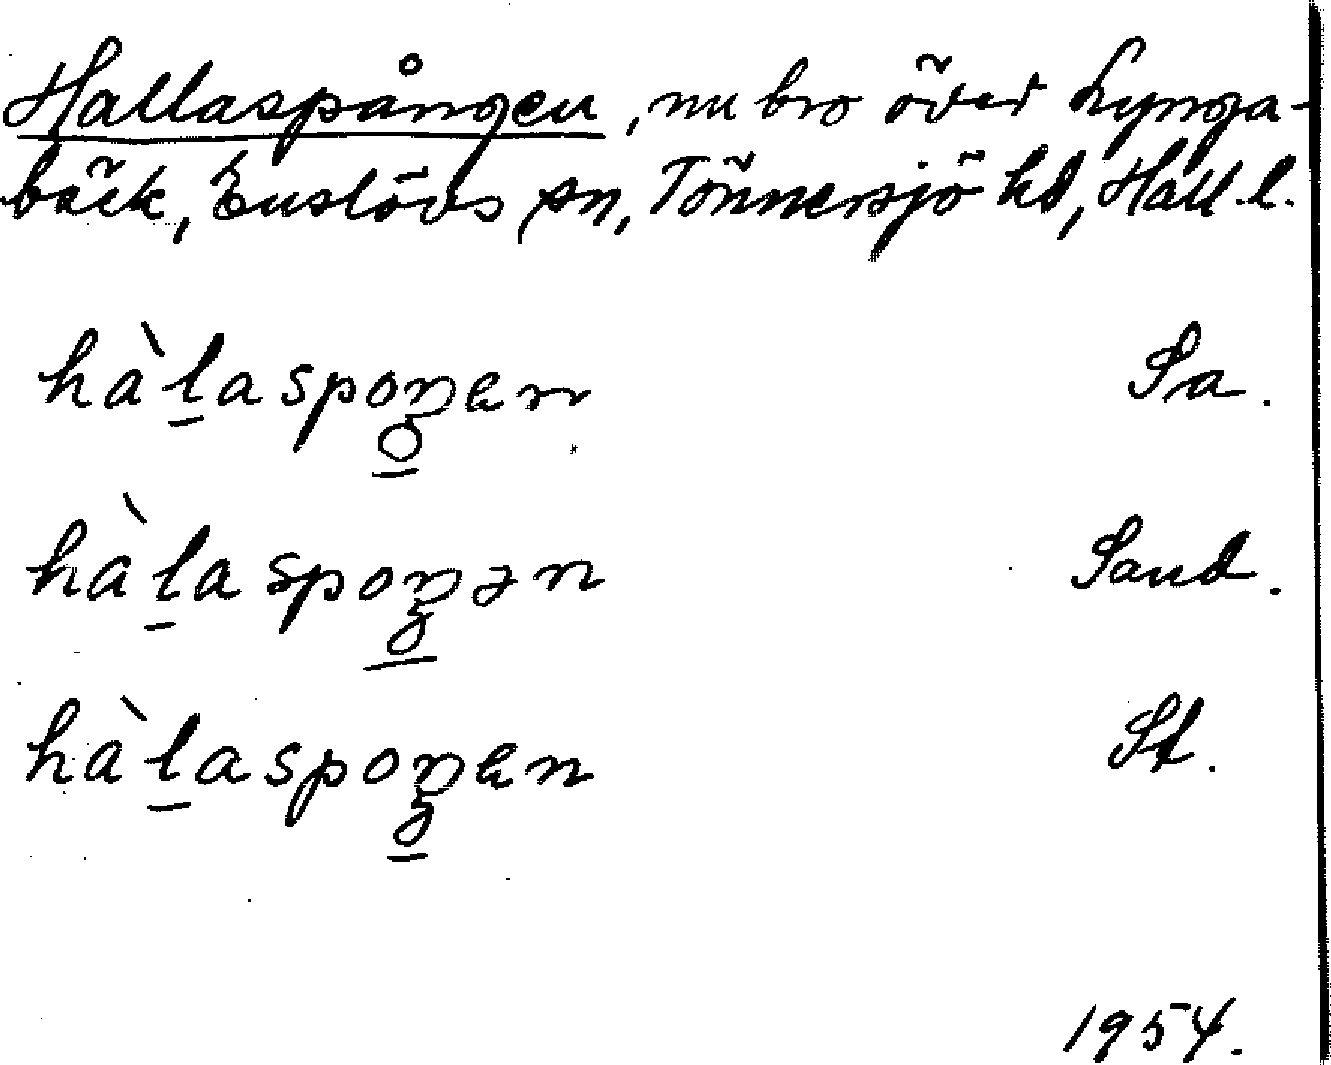 Hallaspången, nu bro över Lynga-
bäck, Enslövs sn, Tönnersjö hd, Hall. l.
hàlaspoŋen Sa.
hàlaspoŋən Sand.
hàlaspoŋen St.
1954.